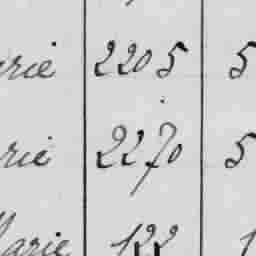 rie 2205 5
rie 2270 5
Marie 122 1